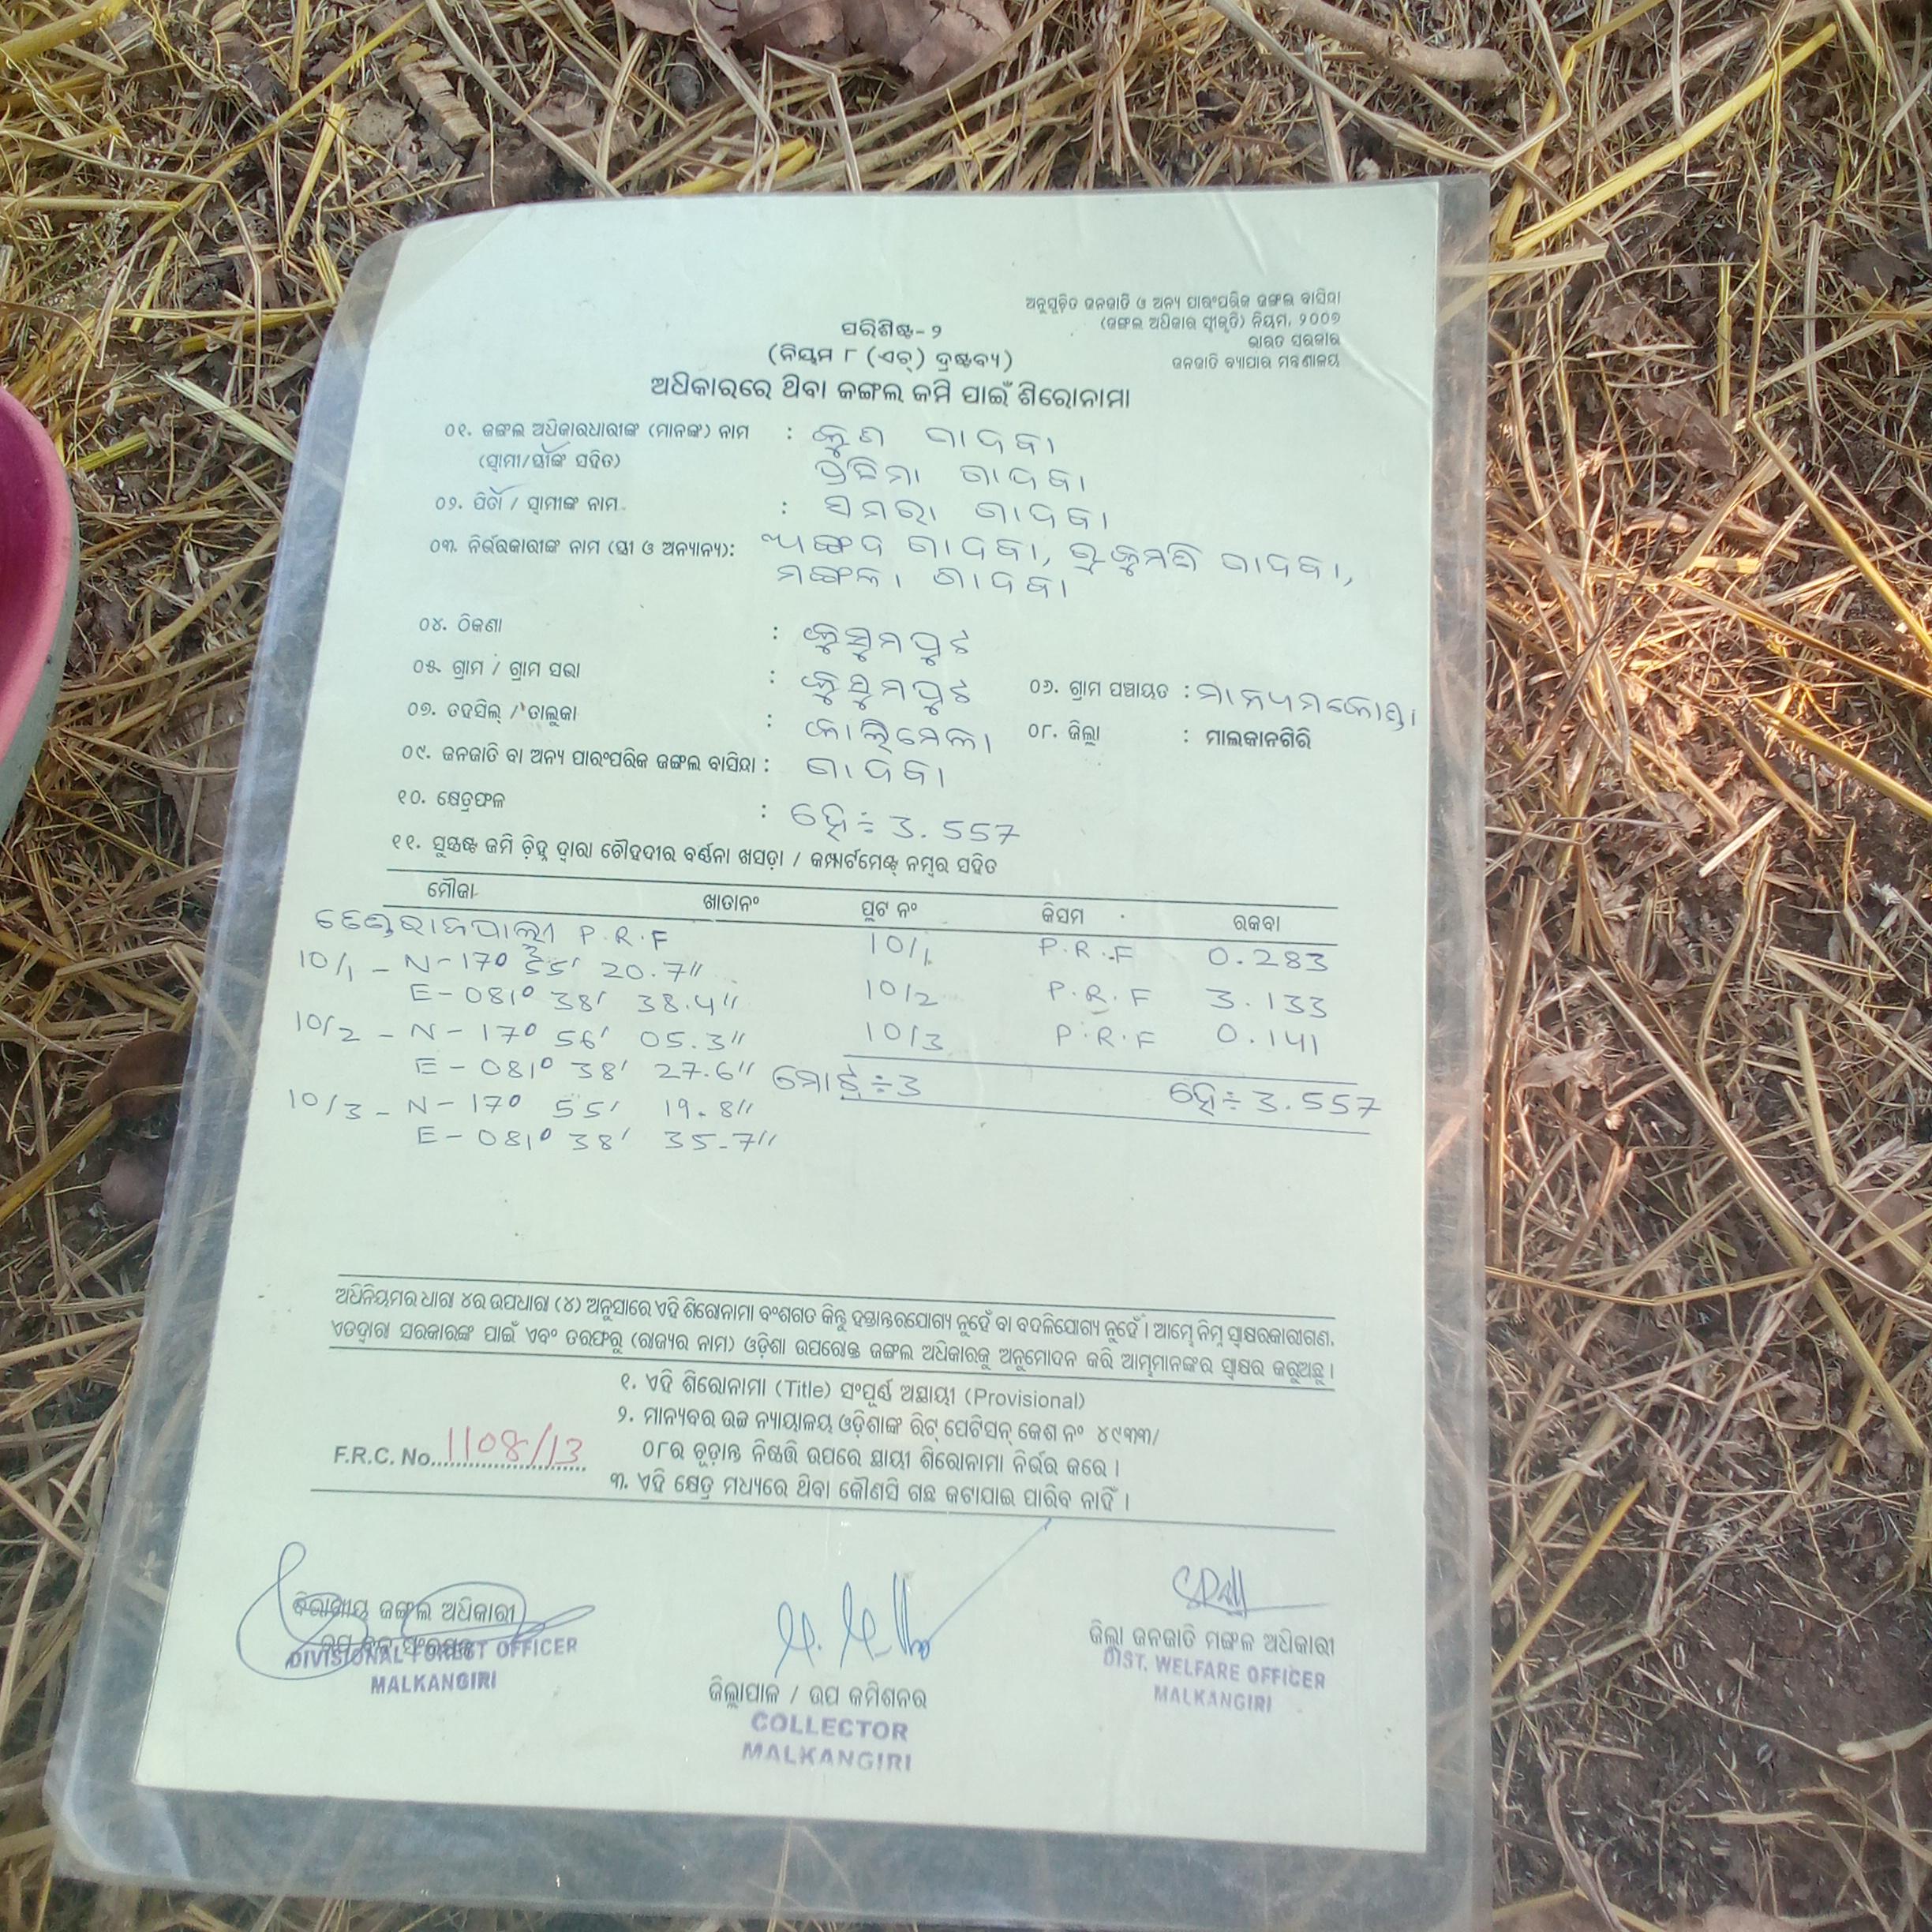 ଅନୁସୂଚିତ ଜନଜାତି ଓ ଅନ୍ୟ ପାରଂପରିକ ଜଙ୍ଗଲ ବାସିନ୍ଦା
(ଜଙ୍ଗଲ ଅଧିକାର ସ୍ୱୀକୃତି) ନିୟମ, ୨୦୦୭
ଭାରତ ସରକାର
ଜନଜାତି ବ୍ୟାପାର ମନ୍ତ୍ରଣାଳୟ
ପରିଶିଷ୍ଟ-୨
(ନିୟମ ୮ (ଏଚ୍) ଦ୍ରଷ୍ଟବ୍ୟ)
ଅଧିକାରରେ ଥିବା ଜଙ୍ଗଲ ଜମି ପାଇଁ ଶିରୋନାମା
୦୧. ଜଙ୍ଗଲ ଅଧିକାରଧାରୀଙ୍କ (ମାନଙ୍କ) ନାମ : କୁଶ ଗାଦବା
(ସ୍ୱାମୀ/ସ୍ତ୍ରୀଙ୍କ ସହିତ) ପ୍ରତିମା ଗାଦବା
୦୨. ପିତା / ସ୍ୱାମୀଙ୍କ ନାମ : ସମରା ଗାଦବା
୦୩. ନିର୍ଭରକାରୀଙ୍କ ନାମ (ସ୍ତ୍ରୀ ଓ ଅନ୍ୟାନ୍ୟ): ଅଙ୍ଗଦ ଗାଦବା, ରୁକୁମଣି ଗାଦବା,
ମଙ୍ଗଳା ଗାଦବା
୦୪. ଠିକଣା : କୁସୁମପୁଟ
୦୫. ଗ୍ରାମ / ଗ୍ରାମ ସଭା : କୁସୁମପୁଟ ୦୬. ଗ୍ରାମ ପଞ୍ଚାୟତ : ମାନ୍ୟମକୋଣ୍ଡା
୦୭. ତହସିଲ୍ / ତାଲୁକା : କାଲିମେଳା ୦୮. ଜିଲ୍ଲା : ମାଲକାନଗିରି
୦୯. ଜନଜାତି ବା ଅନ୍ୟ ପାରଂପରିକ ଜଙ୍ଗଲ ବାସିନ୍ଦା : ଗାଦବା
୧୦. କ୍ଷେତ୍ରଫଳ : ହେ÷ 3.557
୧୧. ସୁସ୍ପଷ୍ଟ ଜମି ଚିହ୍ନ ଦ୍ୱାରା ଚୌହଦୀର ବର୍ଣ୍ଣନା ଖସଡ଼ା / କମ୍ପାର୍ଟମେଣ୍ଟ ନମ୍ବର ସହିତ
ମୌଜା ଖାତାନଂ ପ୍ଲଟ ନଂ କିସମ ରକବା
P.R.F 10/1 P.R.F 0.283
10/1 - N-17° 55' 20.7"
E-081° 38' 38.4" 10/2 P.R.F 3.133
10/2 - N-17° 56' 05.3" 10/3 P.R.F 0.141
E-081° 38' 27.6" ମୋଟ÷3 ହେ÷3.557
10/3 - N-17° 55' 19.8"
E-081° 38' 35.7"
ଅଧିନିୟମର ଧାରା ୪ର ଉପଧାରା (୪) ଅନୁସାରେ ଏହି ଶିରୋନାମା ବଂଶଗତ କିନ୍ତୁ ହସ୍ତାନ୍ତରଯୋଗ୍ୟ ନୁହେଁ ବା ବଦଳିଯୋଗ୍ୟ ନୁହେଁ । ଆମ୍ଭେ ନିମ୍ନ ସ୍ୱାକ୍ଷରକାରୀଗଣ.
ଏତଦ୍ୱାରା ସରକାରଙ୍କ ପାଇଁ ଏବଂ ତରଫରୁ (ରାଜ୍ୟର ନାମ) ଓଡ଼ିଶା ଉପରୋକ୍ତ ଜଙ୍ଗଲ ଅଧିକାରକୁ ଅନୁମୋଦନ କରି ଆମ୍ଭମାନଙ୍କର ସ୍ୱାକ୍ଷର କରୁଅଛୁ ।
୧. ଏହି ଶିରୋନାମା (Title) ସଂପୂର୍ଣ୍ଣ ଅସ୍ଥାୟୀ (Provisional)
୨. ମାନ୍ୟବର ଉଚ୍ଚ ନ୍ୟାୟାଳୟ ଓଡ଼ିଶାଙ୍କ ରିଟ୍ ପେଟିସନ୍ କେଶ ନଂ ୪୯୩୩/
୦୮ର ଚୂଡ଼ାନ୍ତ ନିଷ୍ପତ୍ତି ଉପରେ ସ୍ଥାୟୀ ଶିରୋନାମା ନିର୍ଭର କରେ ।
F.R.C. No. 1108/13
୩. ଏହି କ୍ଷେତ୍ର ମଧ୍ୟରେ ଥିବା କୌଣସି ଗଛ କଟାଯାଇ ପାରିବ ନାହିଁ ।
ବିଭାଗୀୟ ଜଙ୍ଗଲ ଅଧିକାରୀ
ଉପ ବନ ସଂରକ୍ଷକ
DIVISIONAL FOREST OFFICER
MALKANGIRI
ଜିଲ୍ଲାପାଳ / ଉପ କମିଶନର
COLLECTOR
MALKANGIRI
ଜିଲ୍ଲା ଜନଜାତି ମଙ୍ଗଳ ଅଧିକାରୀ
DIST. WELFARE OFFICER
MALKANGIRI